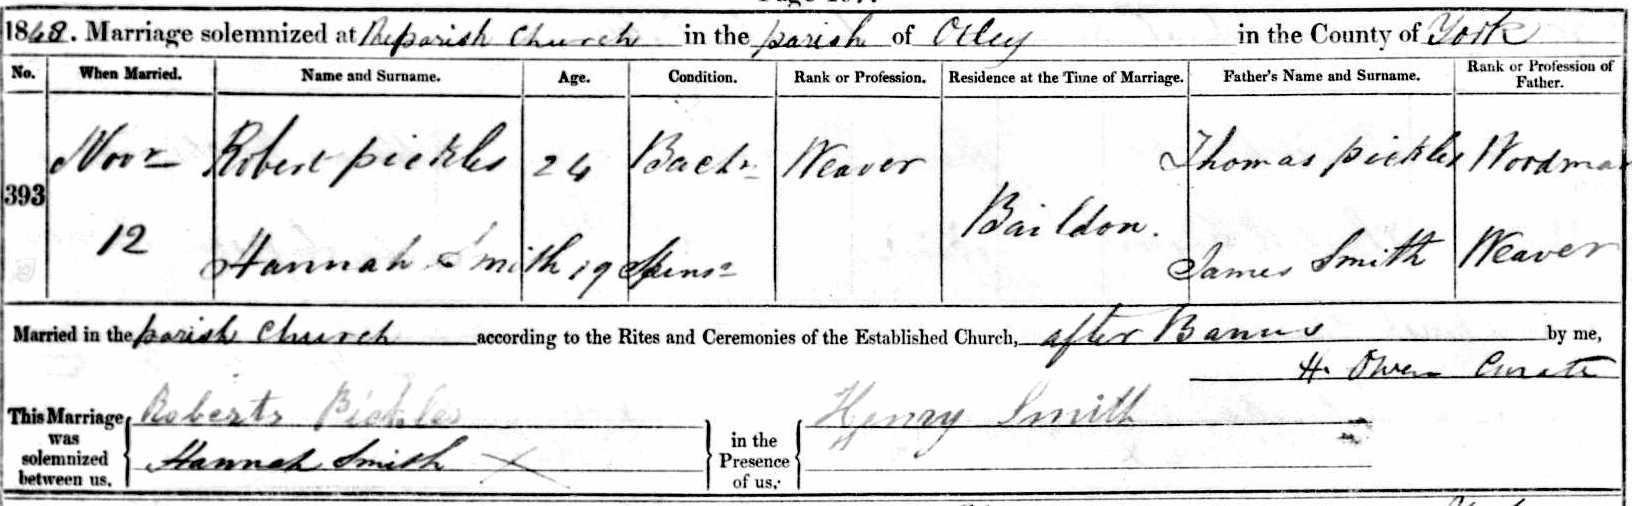 1868. Marriage solemnized at The parish Church in the parish of Otley in the County of York
No. When Married. Name and Surname. Age. Condition. Rank or Profession. Residence at the Time of Marriage. Father's Name and Surname. Rank or Profession of Father.
393 Novr 12 Robert pickles 24 Bachr Weaver Baildon. Thomas pickles Woodman
Hannah Smith 19 Spinsr James Smith Weaver
Married in the parish Church according to the Rites and Ceremonies of the Established Church, after Banns by me,
H. Owen Curate
This Marriage was solemnized between us, Roberts Pickles
Hannah Smith X
in the Presence of us, Henry Smith